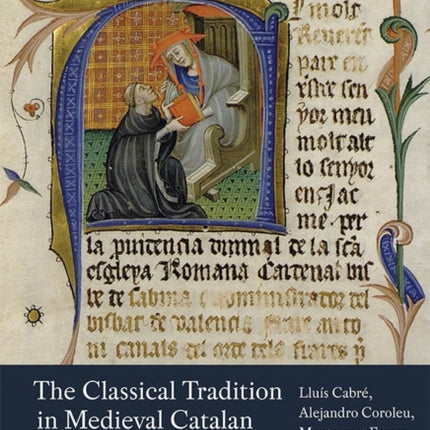 l molt
Reverēt
pare en
xpist re sen
yor meu
molt alt
lo senyor
en Jac
me per
la puidencia diuinal de la sca
esgleya Romana Cartenal bis
be de sabina e administrador del
bisbat de valencia frare anto
ni canals del orde dels frares p
The Classical Tradition
in Medieval Catalan
Lluís Cabré,
Alejandro Coroleu,